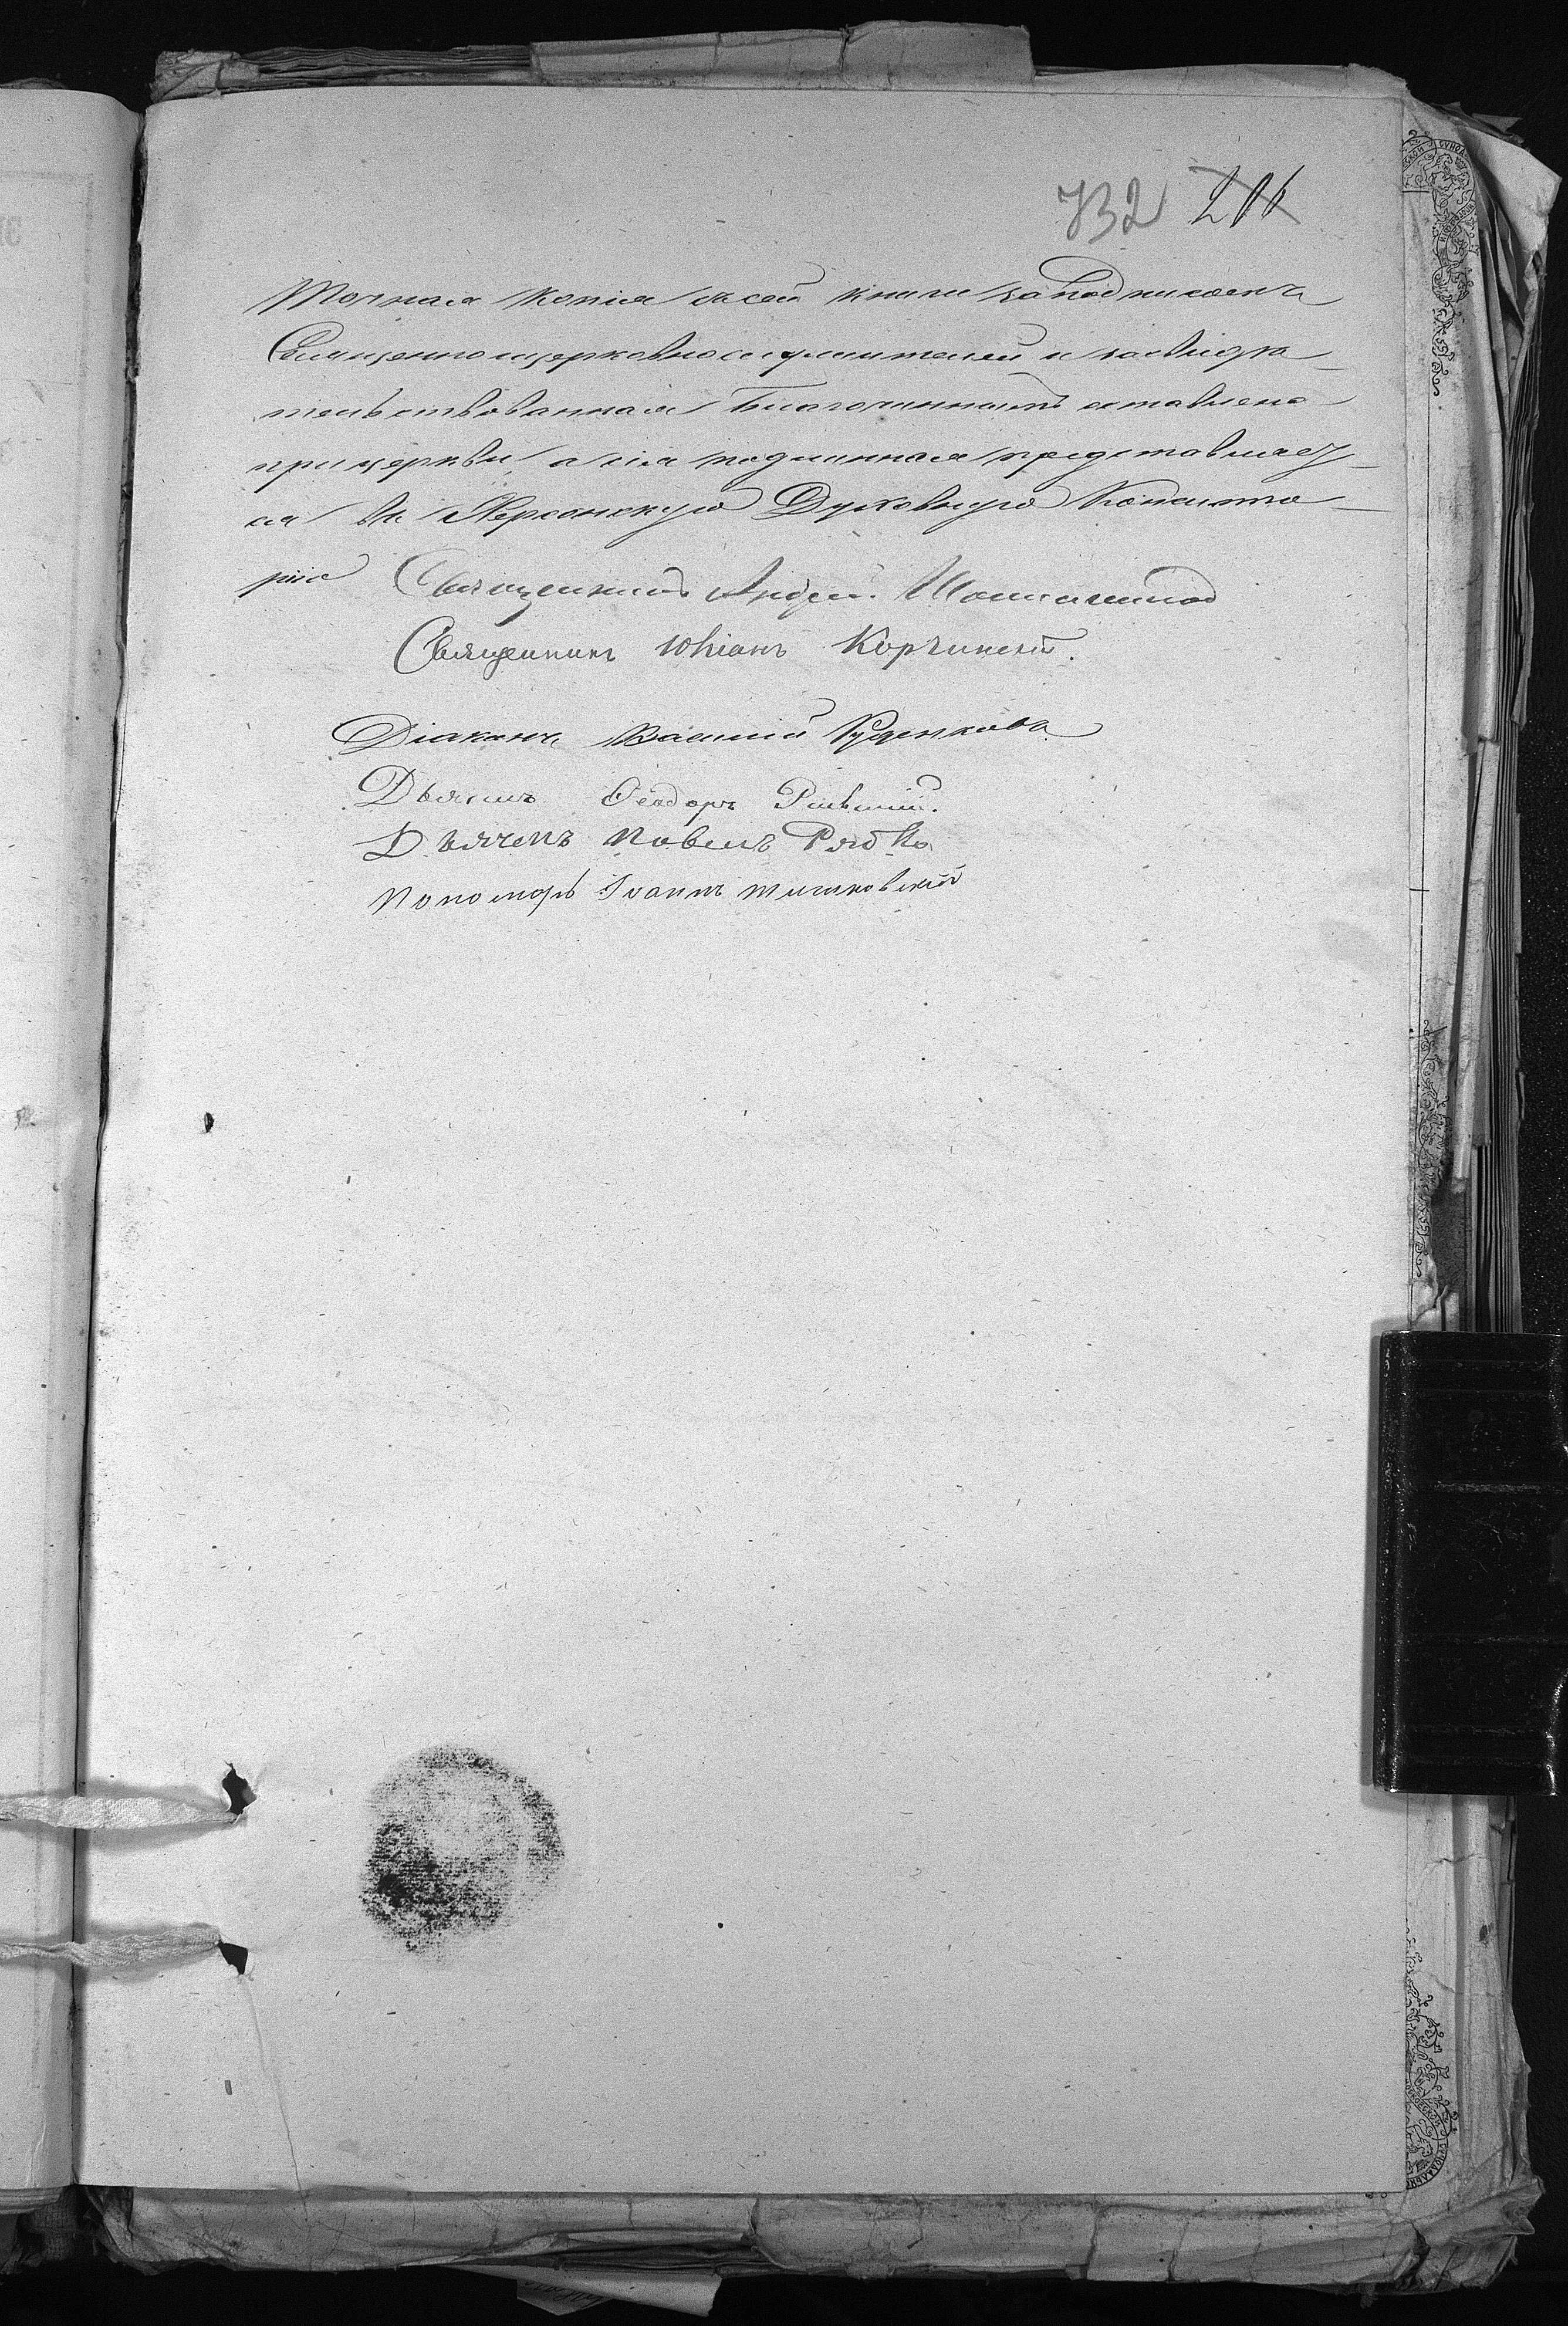 732 206
Точная копія съ сей книги за подписомъ
Священноцерковнослужителей и засвидѣ-
тельствованная Благочиннымъ оставлена
при церкви, а сія подлинная представляет-
ся въ Херсонскую Духовную Консисто-
рію
Священникъ Андрей
Священникъ Юліанъ Корчинскій.
Діаконъ Василій
Дьячекъ Ѳеодоръ
Дьячекъ Павелъ Рябко
Пономарь Іоаннъ